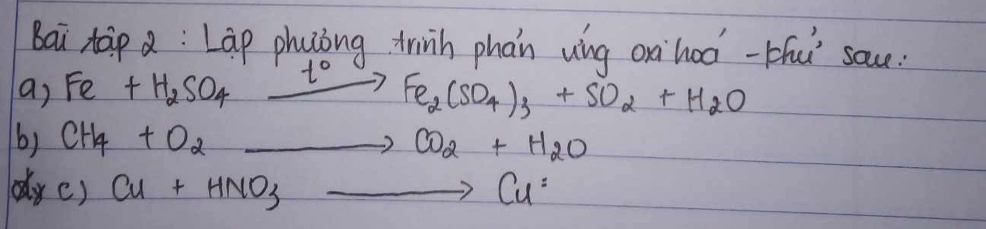 Bài tập 2 : Lập phương trình phản ứng oxi hoá - khử sau:
a, Fe + H₂SO₄ t° ⟶ Fe₂(SO₄)₃ + SO₂ + H₂O
b) CH₄ + O₂ ⟶ CO₂ + H₂O
c) Cu + HNO₃ ⟶ Cu